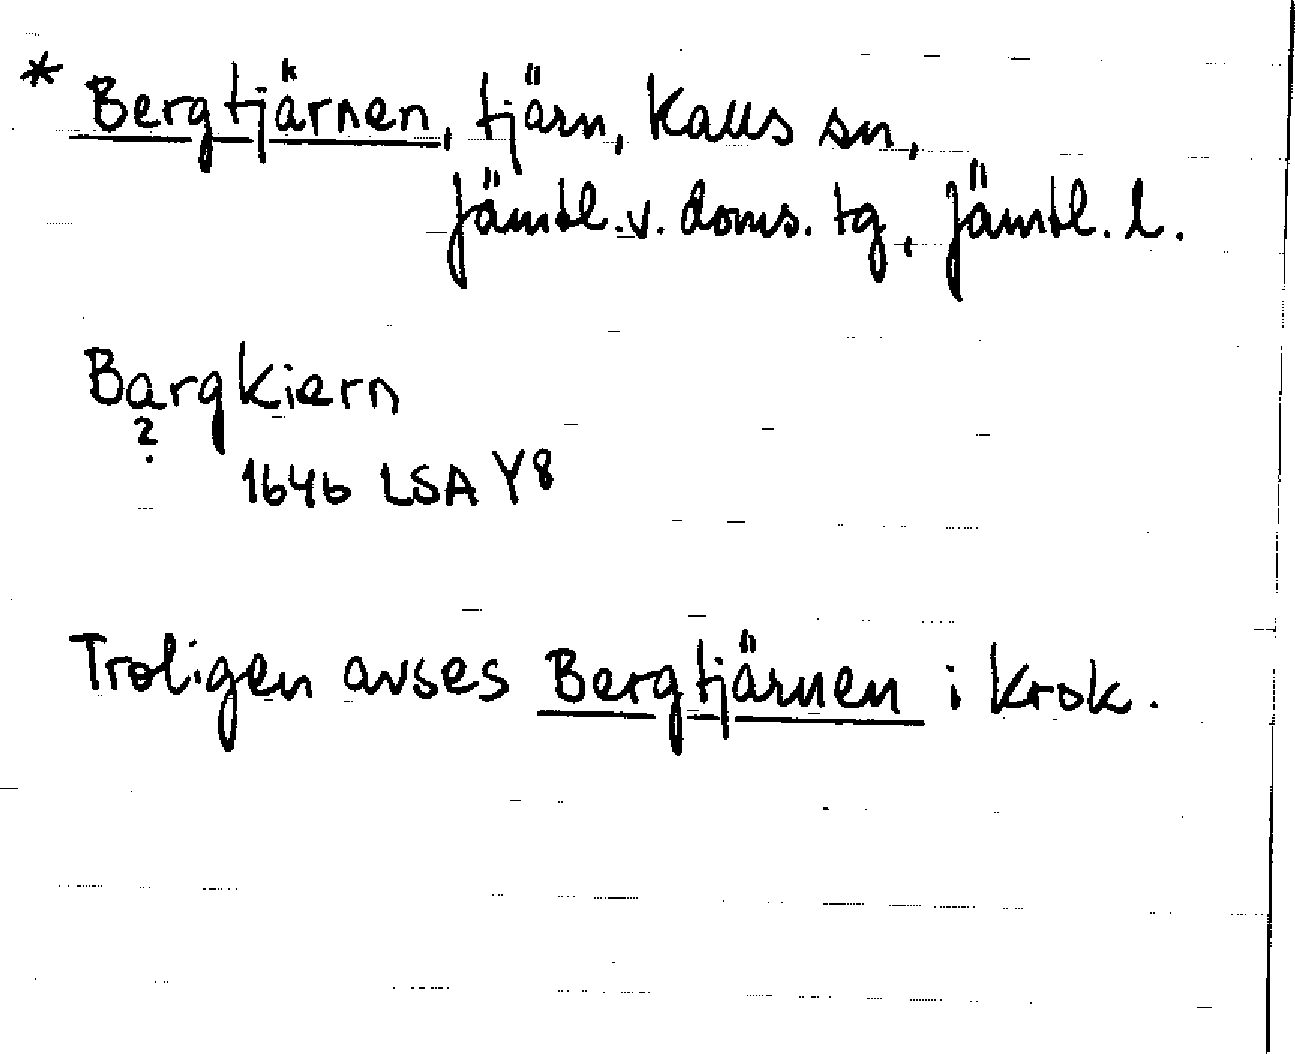 * Bergtjärnen, tjärn, Kalls sn,
Jämtl. v. doms. tg, Jämtl. l.
Bargkiern
?
1646 LSA Y8
Troligen avses Bergtjärnen i Krok.